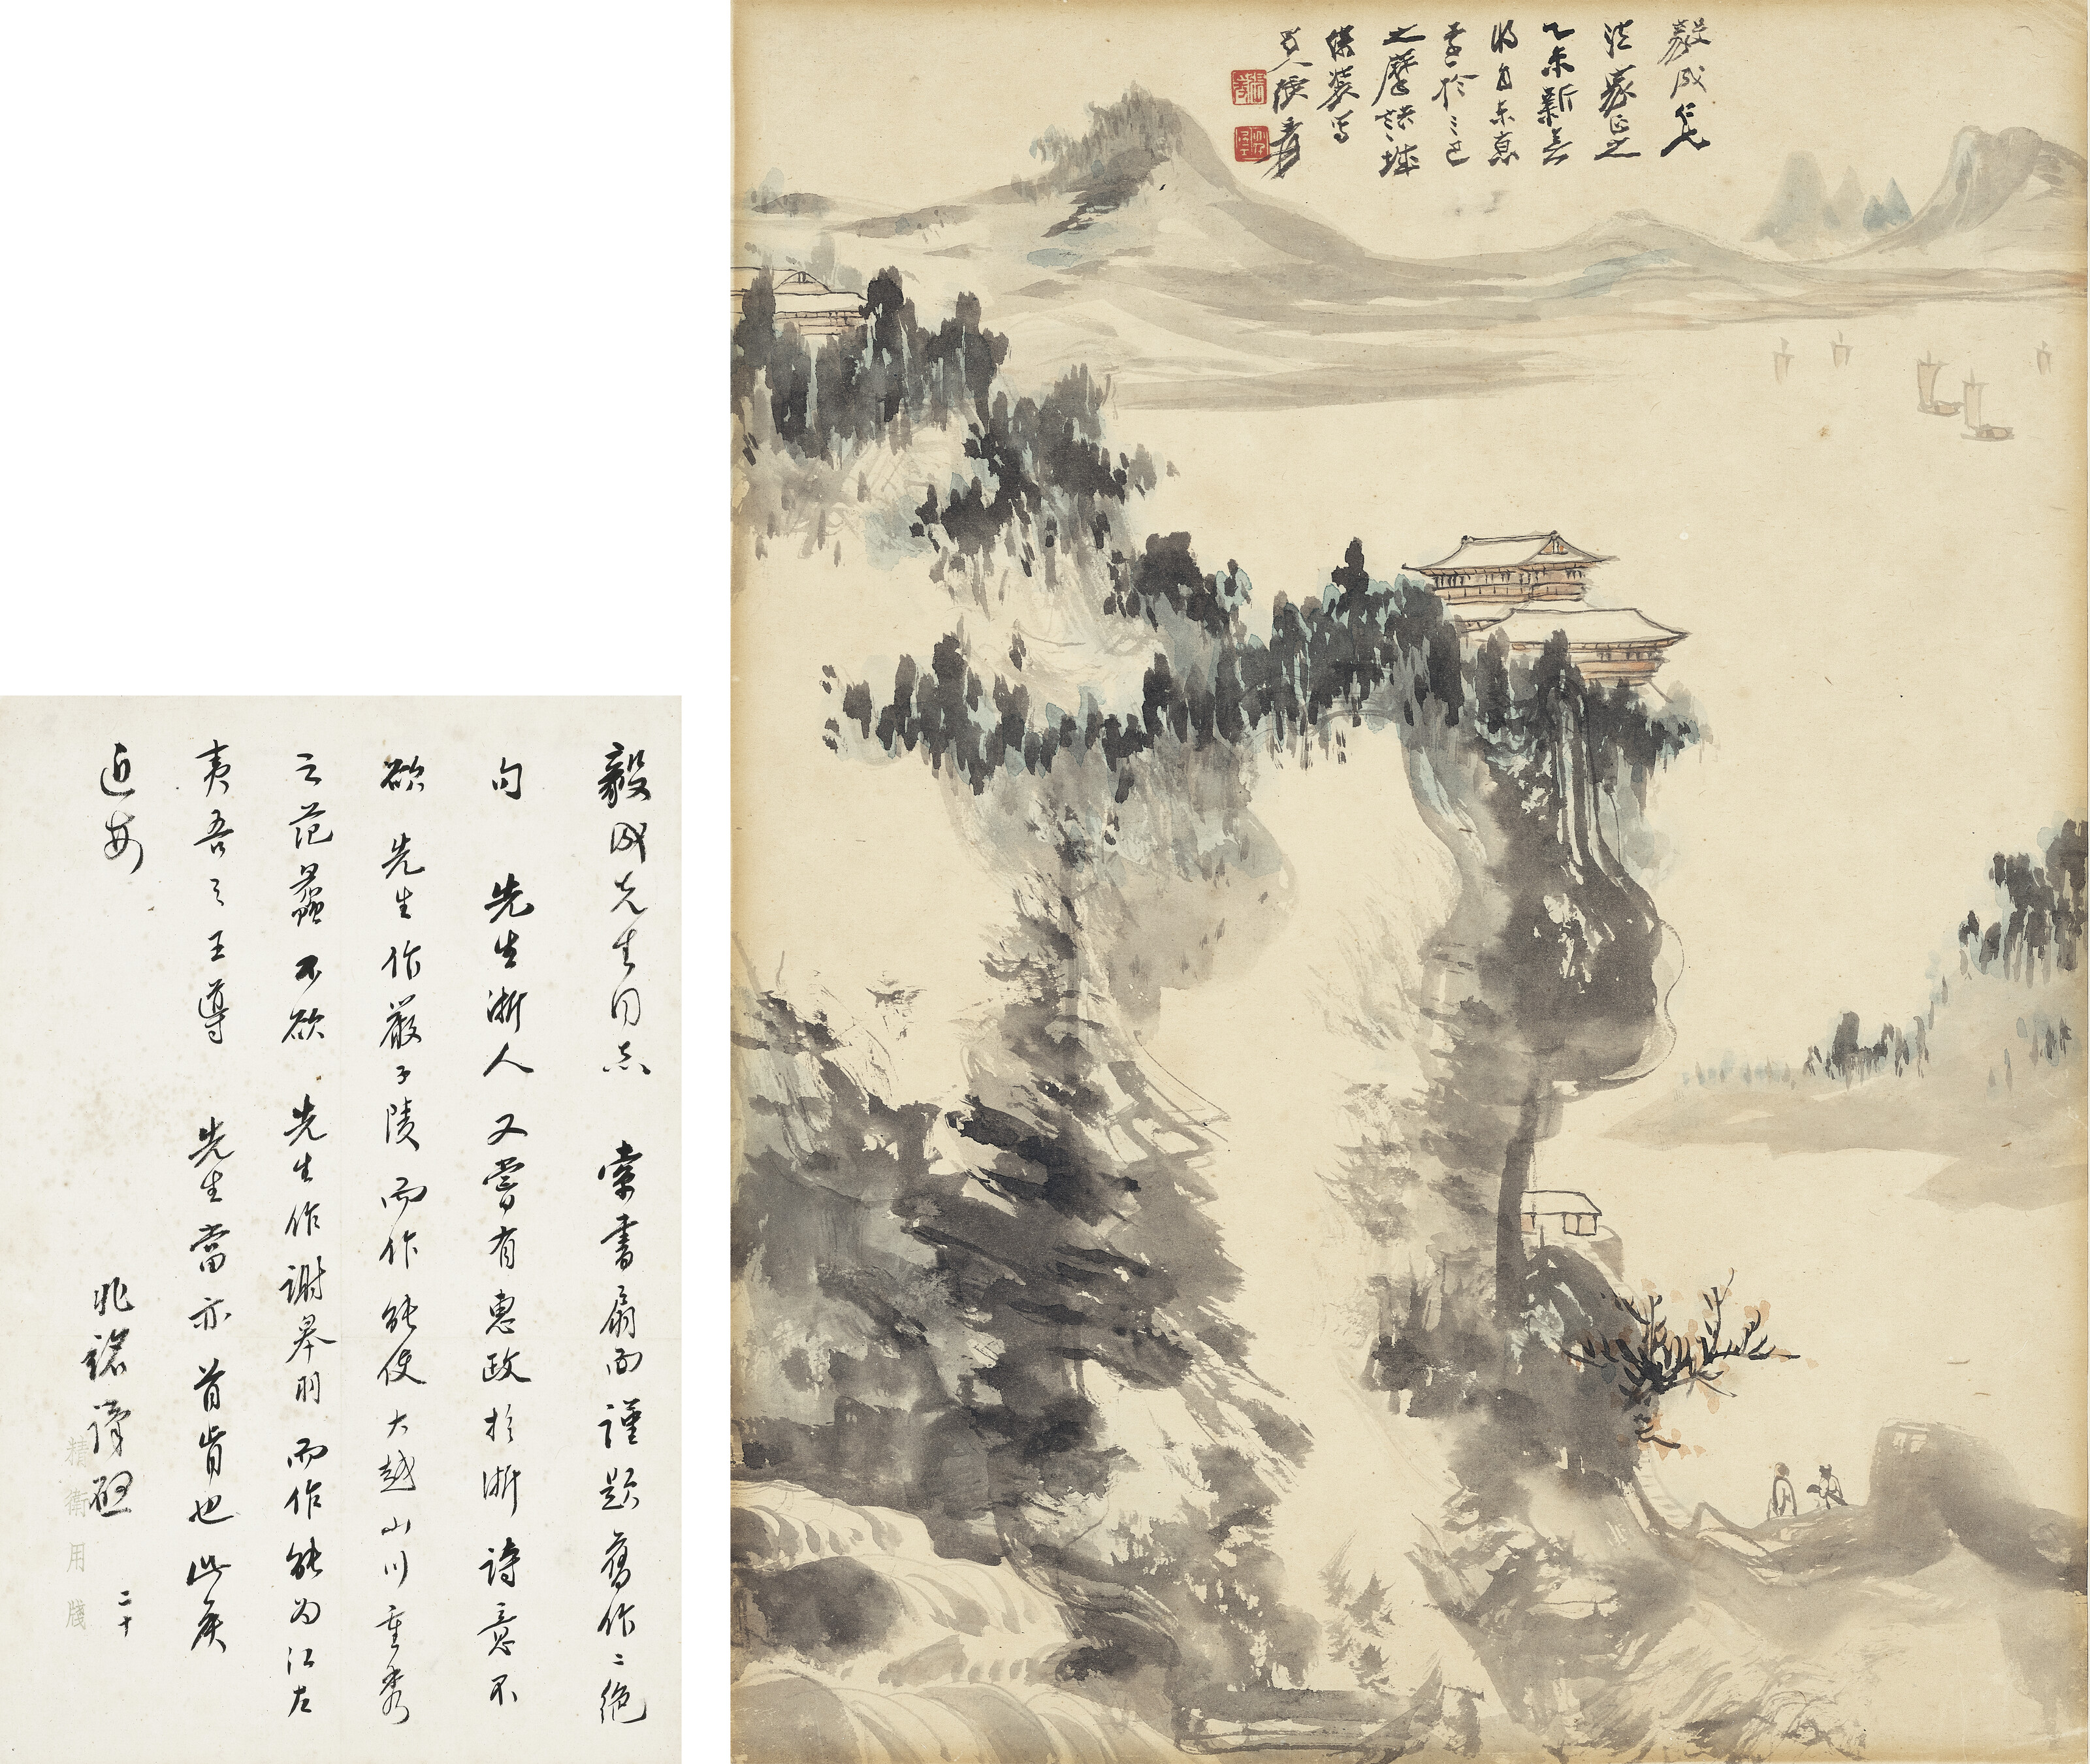 毅成仁兄
法家正之
乙未新春
將自東京
季於三巴
之摩詰城
俶裝寫
大千張爰
毅成先生同志 索書扇面謹題舊作二絕
句 先生浙人又嘗有惠政於浙詩意不
欲 先生作嚴子陵而作能使大越山川重秀
之范蠡不欲 先生作謝皋羽而作能為江左
夷吾之王導 先生當亦首肯也此矦
近安
兆銘謹啟 二十
精衛用牋